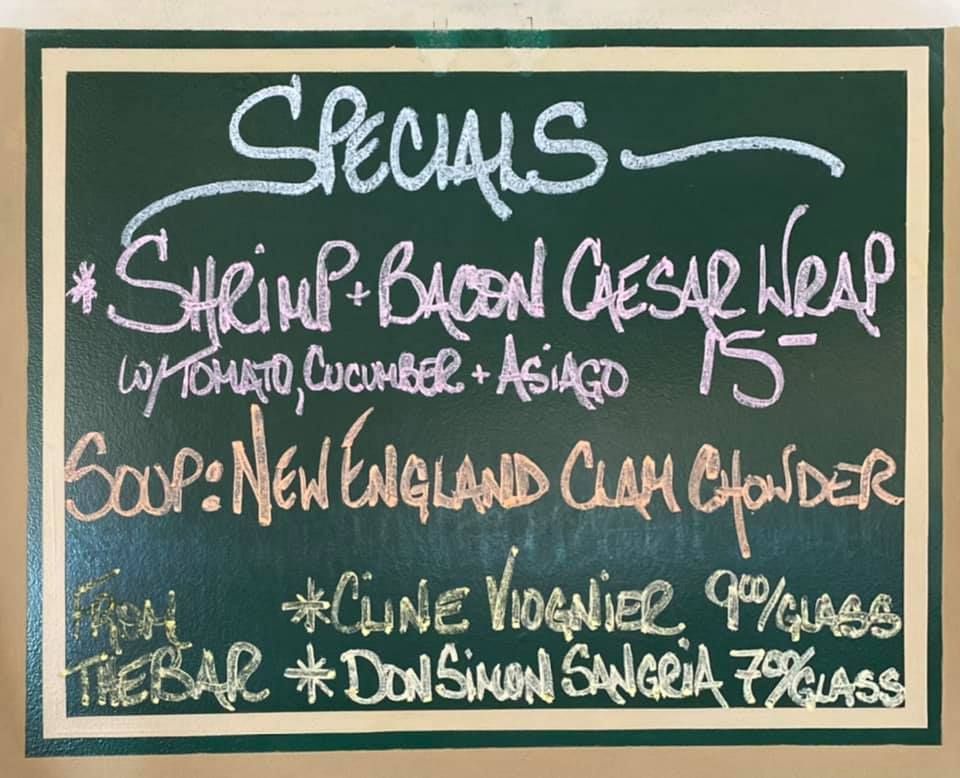 SPECIALS
* SHRIMP + BACON CAESAR WRAP
W/ TOMATO, CUCUMBER + ASIAGO 15-
SOUP: NEW ENGLAND CLAM CHOWDER
FROM * CLINE VIOGNIER 9.00/GLASS
THE BAR * DON SIMON SANGRIA 7.00/GLASS